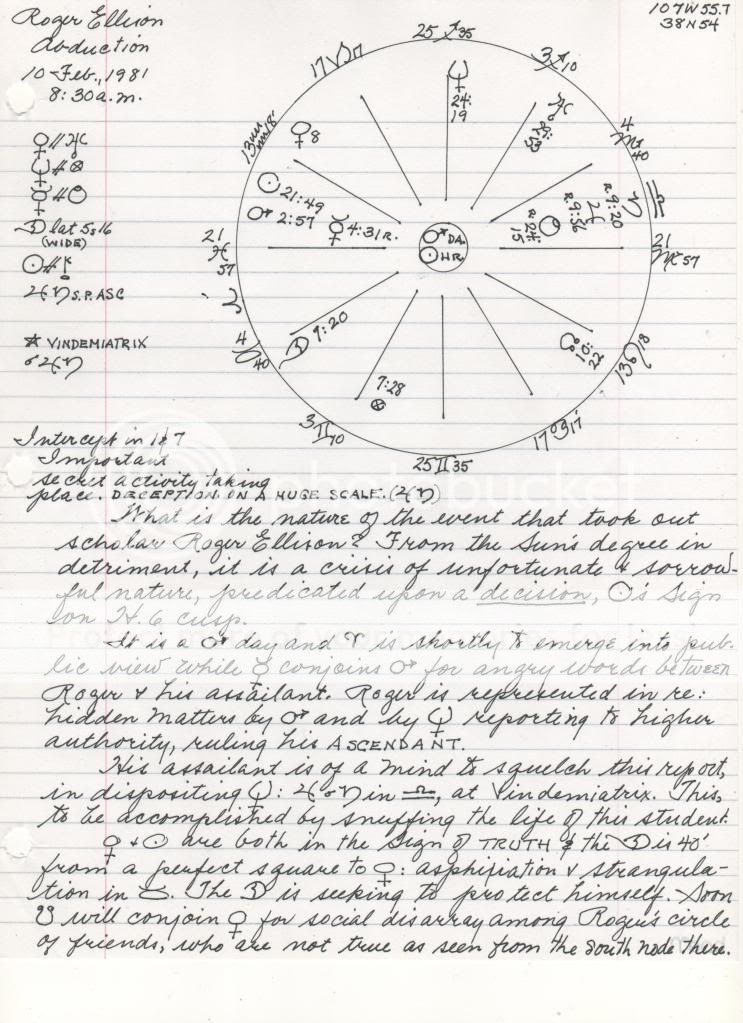 Roger Ellison
Abduction
10 Feb., 1981
8:30 a.m.
107W55.7
38N54
♀∥♃
♆∥⊗
☿∥☉
☽ lat 5s16
(WIDE)
☉∥⚷
♃♄ S.P. ASC
☆ VINDEMIATRIX
☌♃♄
25♐35
3♐10
4♏40
♎
21♍57
13♌18
17♋17
25♊35
3♊10
4♉40
♈
21♓57
13♒18
17♑17
♆24:19
R.9:20
R.9:56
R.24:15
♀8
☉21:49
♂2:57
☿4:31R.
♂DA.
☉HR.
☽7:20
7:28
⊗
☊10:22
Intercept in 1&7
Important
secret activity taking
place. DECEPTION ON A HUGE SCALE. (♃♄)
What is the nature of the event that took out
scholar Roger Ellison? From the Sun's degree in
detriment, it is a crisis of unfortunate & sorrow-
ful nature, predicated upon a decision, ☉'s sign
on H. 6 cusp.
It is a ♂ day and ♈ is shortly to emerge into pub-
lic view while ☿ conjoins ♂ for angry words between
Roger & his assailant. Roger is represented in re:
hidden matters by ♂ and by ♆ reporting to higher
authority, ruling his ASCENDANT.
His assailant is of a mind to squelch this report,
in dispositing ♆: ♃☌♄ in ♎, at Vindemiatrix. This,
to be accomplished by snuffing the life of this student.
♀ & ☉ are both in the Sign of TRUTH & the ☽ is 40'
from a perfect square to ♀: asphixiation & strangula-
tion in ♉. The ☽ is seeking to protect himself. Soon
☋ will conjoin ♀ for social disarray among Roger's circle
of friends, who are not true as seen from the South node there.